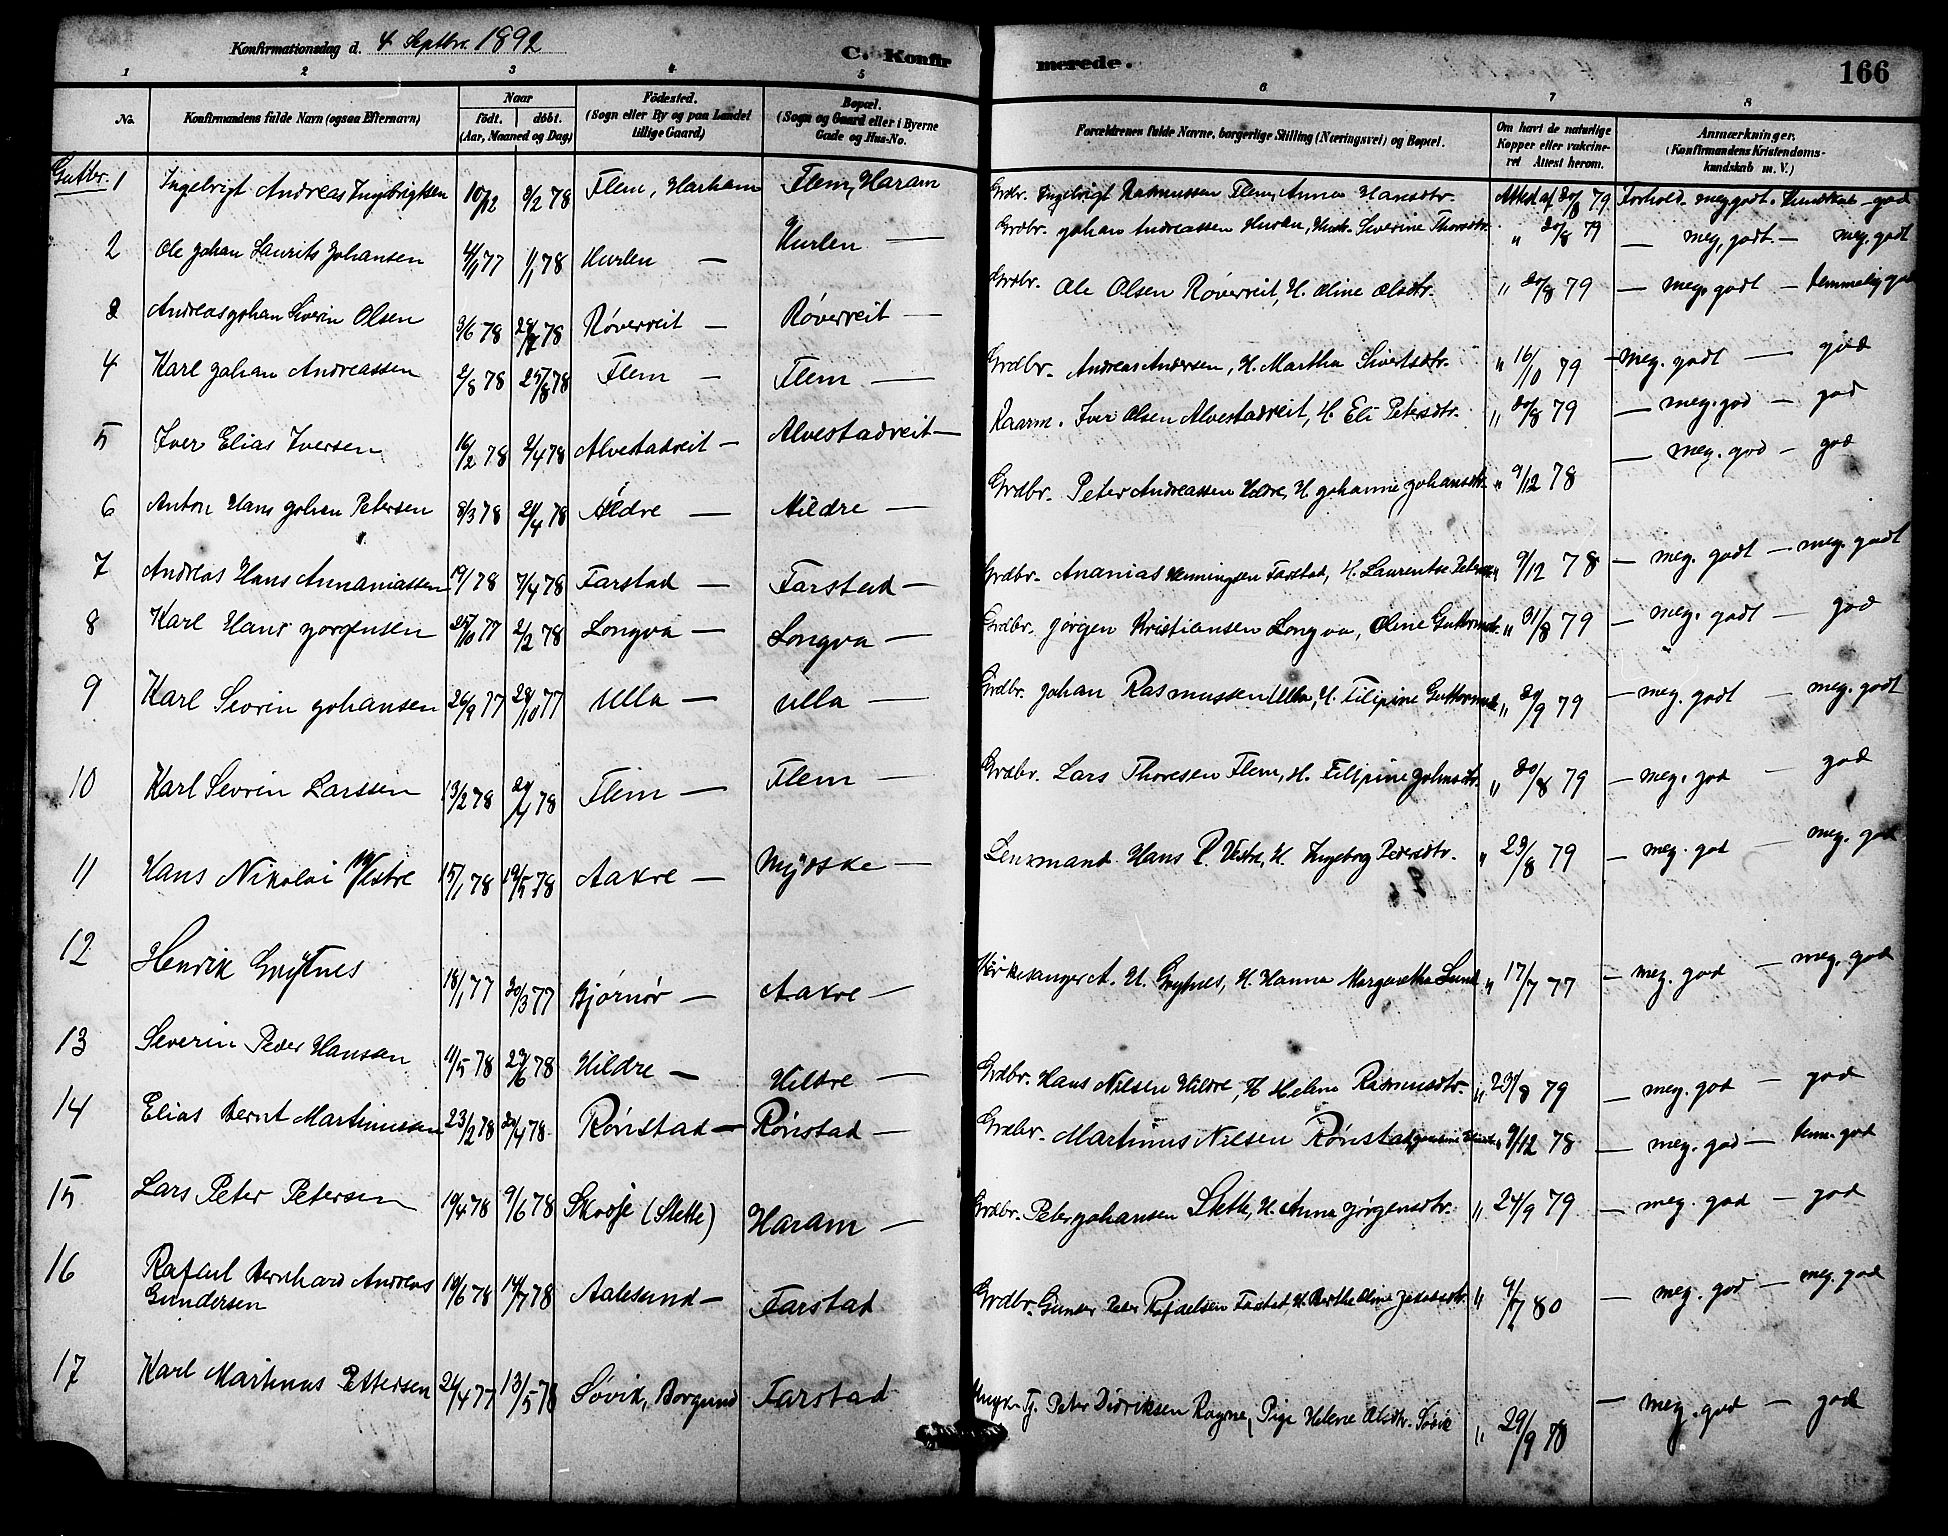 Konfirmationsdag d. 4 Septbr. 1892
C. Konfirmerede.
166
1 2 3 4 5 6 7 8
No. Konfirmandens fulde Navn (ogsaa Efternavn) Naar født. døbt. (Aar, Maaned og Dag) Fødested. (Sogn eller By og paa Landet tillige Gaard) Bopæl. (Sogn og Gaard eller i Byerne Gade og Hus-No. Forældrenes fulde Navne, borgerlige Stilling (Næringsvei) og Bopæl. Om havt de naturlige Kopper eller vakcineret Attest herom. Anmærkninger. (Konfirmandens Kristendomskundskab m. V.)
Gutter.
1 Ingebrigt Andreas Ingebrigtsen 10/12 3/2 78 Flem, Harham Flem, Haram Grdbr. Ingebrigt Rasmussen Flem, Anna Hansdtr. Attest af 20/8 79 Forhold meg. godt. Kundskab god
2 Ole Johan Laurits Johansen 4/11 77 1/1 78 Hurlen — Hurlen — Grdbr. Johan Andreassen Hurlen, Hustr. Severine Thorsdtr. " 20/8 79 — meg. godt — meg. godt
3 Andreas Johan Siverin Olsen 3/6 78 78 Røverreit — Røverreit — Grdbr. Ole Olsen Røverreit, H. Oline Olsdtr. " 20/8 79 — meg. godt — temmelig god
4 Karl Johan Andreassen 2/8 78 25/8 78 Flem — Flem — Grdbr. Andreas Andersen, H. Martha Sivertsdtr. " 16/10 79 — meg. godt — god
5 Iver Elias Iversen 16/2 78 2/4 78 Alvestadreit — Alvestadreit — Kaarm. Iver Olsen Alvestadreit, H. Eli Petersdtr. " 20/8 79 — meg. god — god
6 Anton Hans Johan Petersen 8/3 78 21/4 78 Hildre — Hildre — Grdbr. Peter Andreassen Hildre, H. Johanne Johansdtr. " 9/12 78 — meg. god — god
7 Andreas Hans Annaniassen 78 7/4 78 Farstad — Farstad — Grdbr. Ananias Henningsen Farstad, H. Laurentse " 9/12 78 — meg. godt — meg. godt
8 Karl Hans Jørgensen 25/10 77 2/2 78 Longva — Longva — Grdbr. Jørgen Kristiansen Longva, Oline Guttormsdtr. " 31/8 79 — meg. godt — god
9 Karl Sevrin Johansen 26/9 77 28/10 77 Ulla — Ulla — Grdbr. Johan Rasmussen Ulla, H. Filipine Guttormsdtr. " 79 — meg. godt — meg. godt
10 Karl Sevrin Larssen 13/2 78 78 Flem — Flem — Grdbr. Lars Thoresen Flem, H. Filipine Johnsdtr. " 20/8 79 — meg. god — god
11 Hans Nikolai Vestre 15/1 78 19/5 78 Aakre — Myrske — Lensmand Hans P. Vestre, H. Ingeborg Pedersdtr. " 29/8 79 — meg. god — meg. god
12 Henrik Grytnes 18/1 77 20/3 77 Bjørnør — Aakre — Kirkesanger A. H. Grytnes, H. Hanna Margaretha Lund " 17/7 77 — meg. god — meg. god
13 Severin Peder Hansen 11/5 78 78 Hildre — Hildre — Grdbr. Hans Nilsen Hildre, H. Helene Rasmusdtr. " 23/8 79 — meg. god — god
14 Elias Bernt Martinussen 23/2 78 78 Rønstad — Rønstad — Grdbr. Martinus Nilsen Rønstad " 9/12 78 — meg. god — tem. god
15 Lars Peter Petersen 19/4 78 9/6 78 Skodje (Stette) Haram — Grdbr. Peter Johansen Stette, H. Anna Jørgensdtr. " 24/9 79 — meg. god — god
16 Rafael Bernhard Andreas Gundersen 10/6 78 14/7 78 Aalesund — Farstad Grdbr. Gunder Peter Rafaelsen Farstad, H. Berthe Oline " 80 — meg. god — meg. god
17 Karl Martinus Pettersen 24/4 77 13/5 78 Søvik, Borgund Farstad Peter Didriksen Rogne, Pige Helene Olsdtr. Søvik " 29/9 78 — meg. god — god